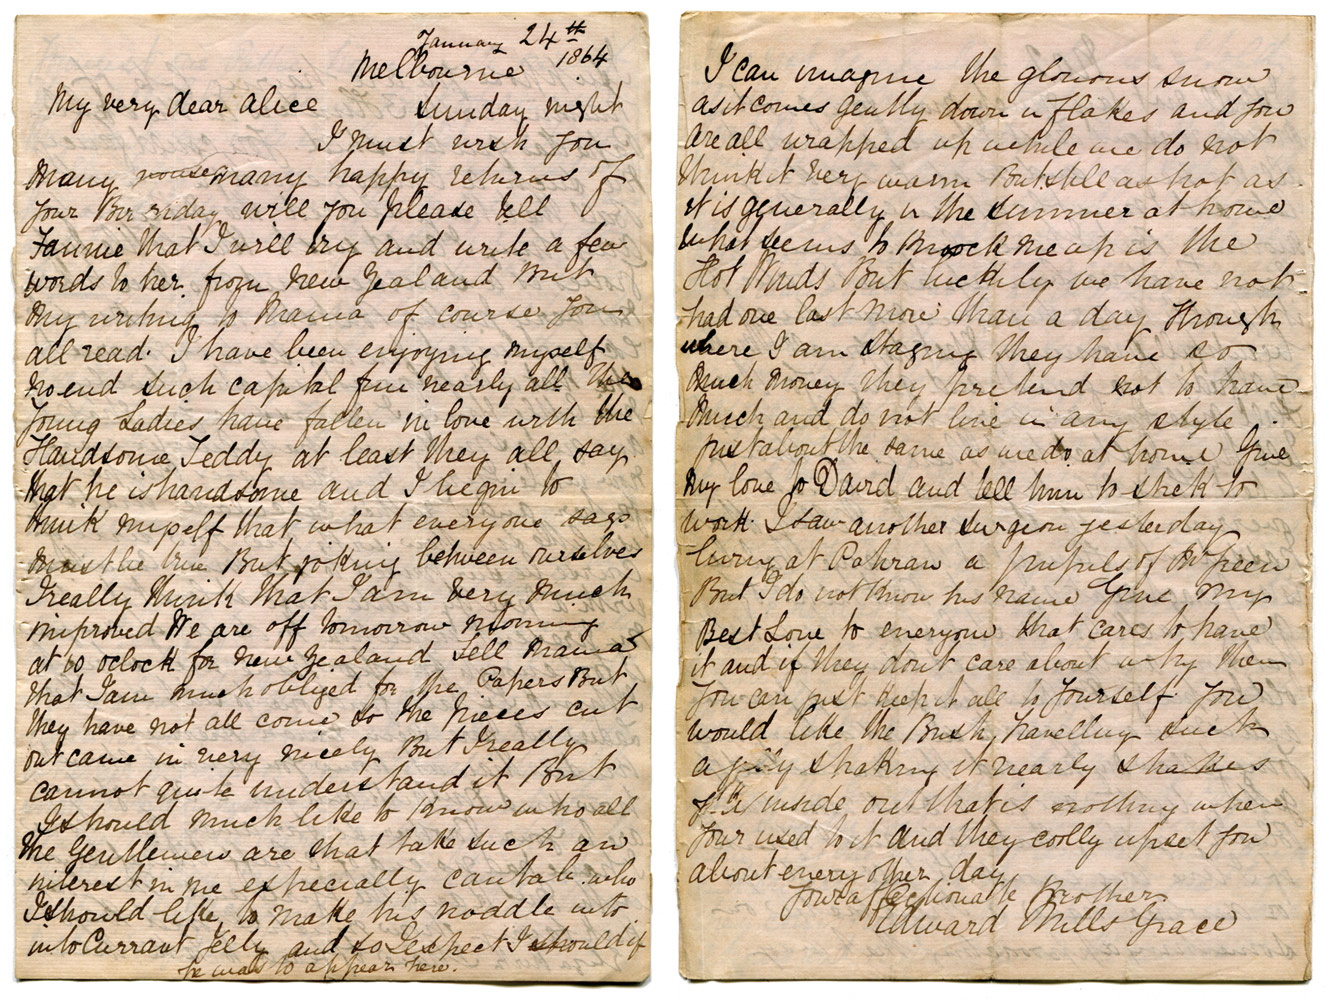 January 24th
1864
Melbourne
My very dear Alice Sunday night
I must wish you
many many happy returns of
your Birthday will you please tell
Fannie that I will try and write a few
words to her from New Zealand But
my writing to Mama of course you
all read. I have been enjoying myself
no end such capital fun nearly all the
young Ladies have fallen in love with the
Handsome Teddy at least they all say
that he is handsome and I begin to
think myself that what everyone says
must be true But joking between ourselves
I really think that I am very much
improved We are off tomorrow morning
at 10 oclock for New Zealand Tell Mama
that I am much obliged for the Papers But
they have not all come so the pieces cut
out came in very nicely But I really
cannot quite understand it But
I should much like to know who all
the Gentlemen are that take such an
interest in me especially cantab. who
I should like to make his noddle into
into Currant Jelly and so I expect I should if
he was to appear here.
I can imagine the glorious snow
as it comes gently down in flakes and you
are all wrapped up while we do not
think it very warm But still as hot as
it is generally in the summer at home
what seems to knock me up is the
Hot Winds But luckily we have not
had one last more than a day though
where I am staying they have so
much money they pretend not to have
much and do not live in any style
just about the same as we do at home Give
my love to David and tell him to stick to
work I saw another surgeon yesterday
living at Pahran a pupils of
But I do not know his name Give my
Best Love to everyone that cares to have
it and if they dont care about it why then
you can just keep it all to yourself You
would like the Bush travelling such
a jolly shaking it nearly shakes
inside out that is nothing when
your used to it and they coolly upset you
about every other day
Your affectionate Brother
Edward Mills Grace